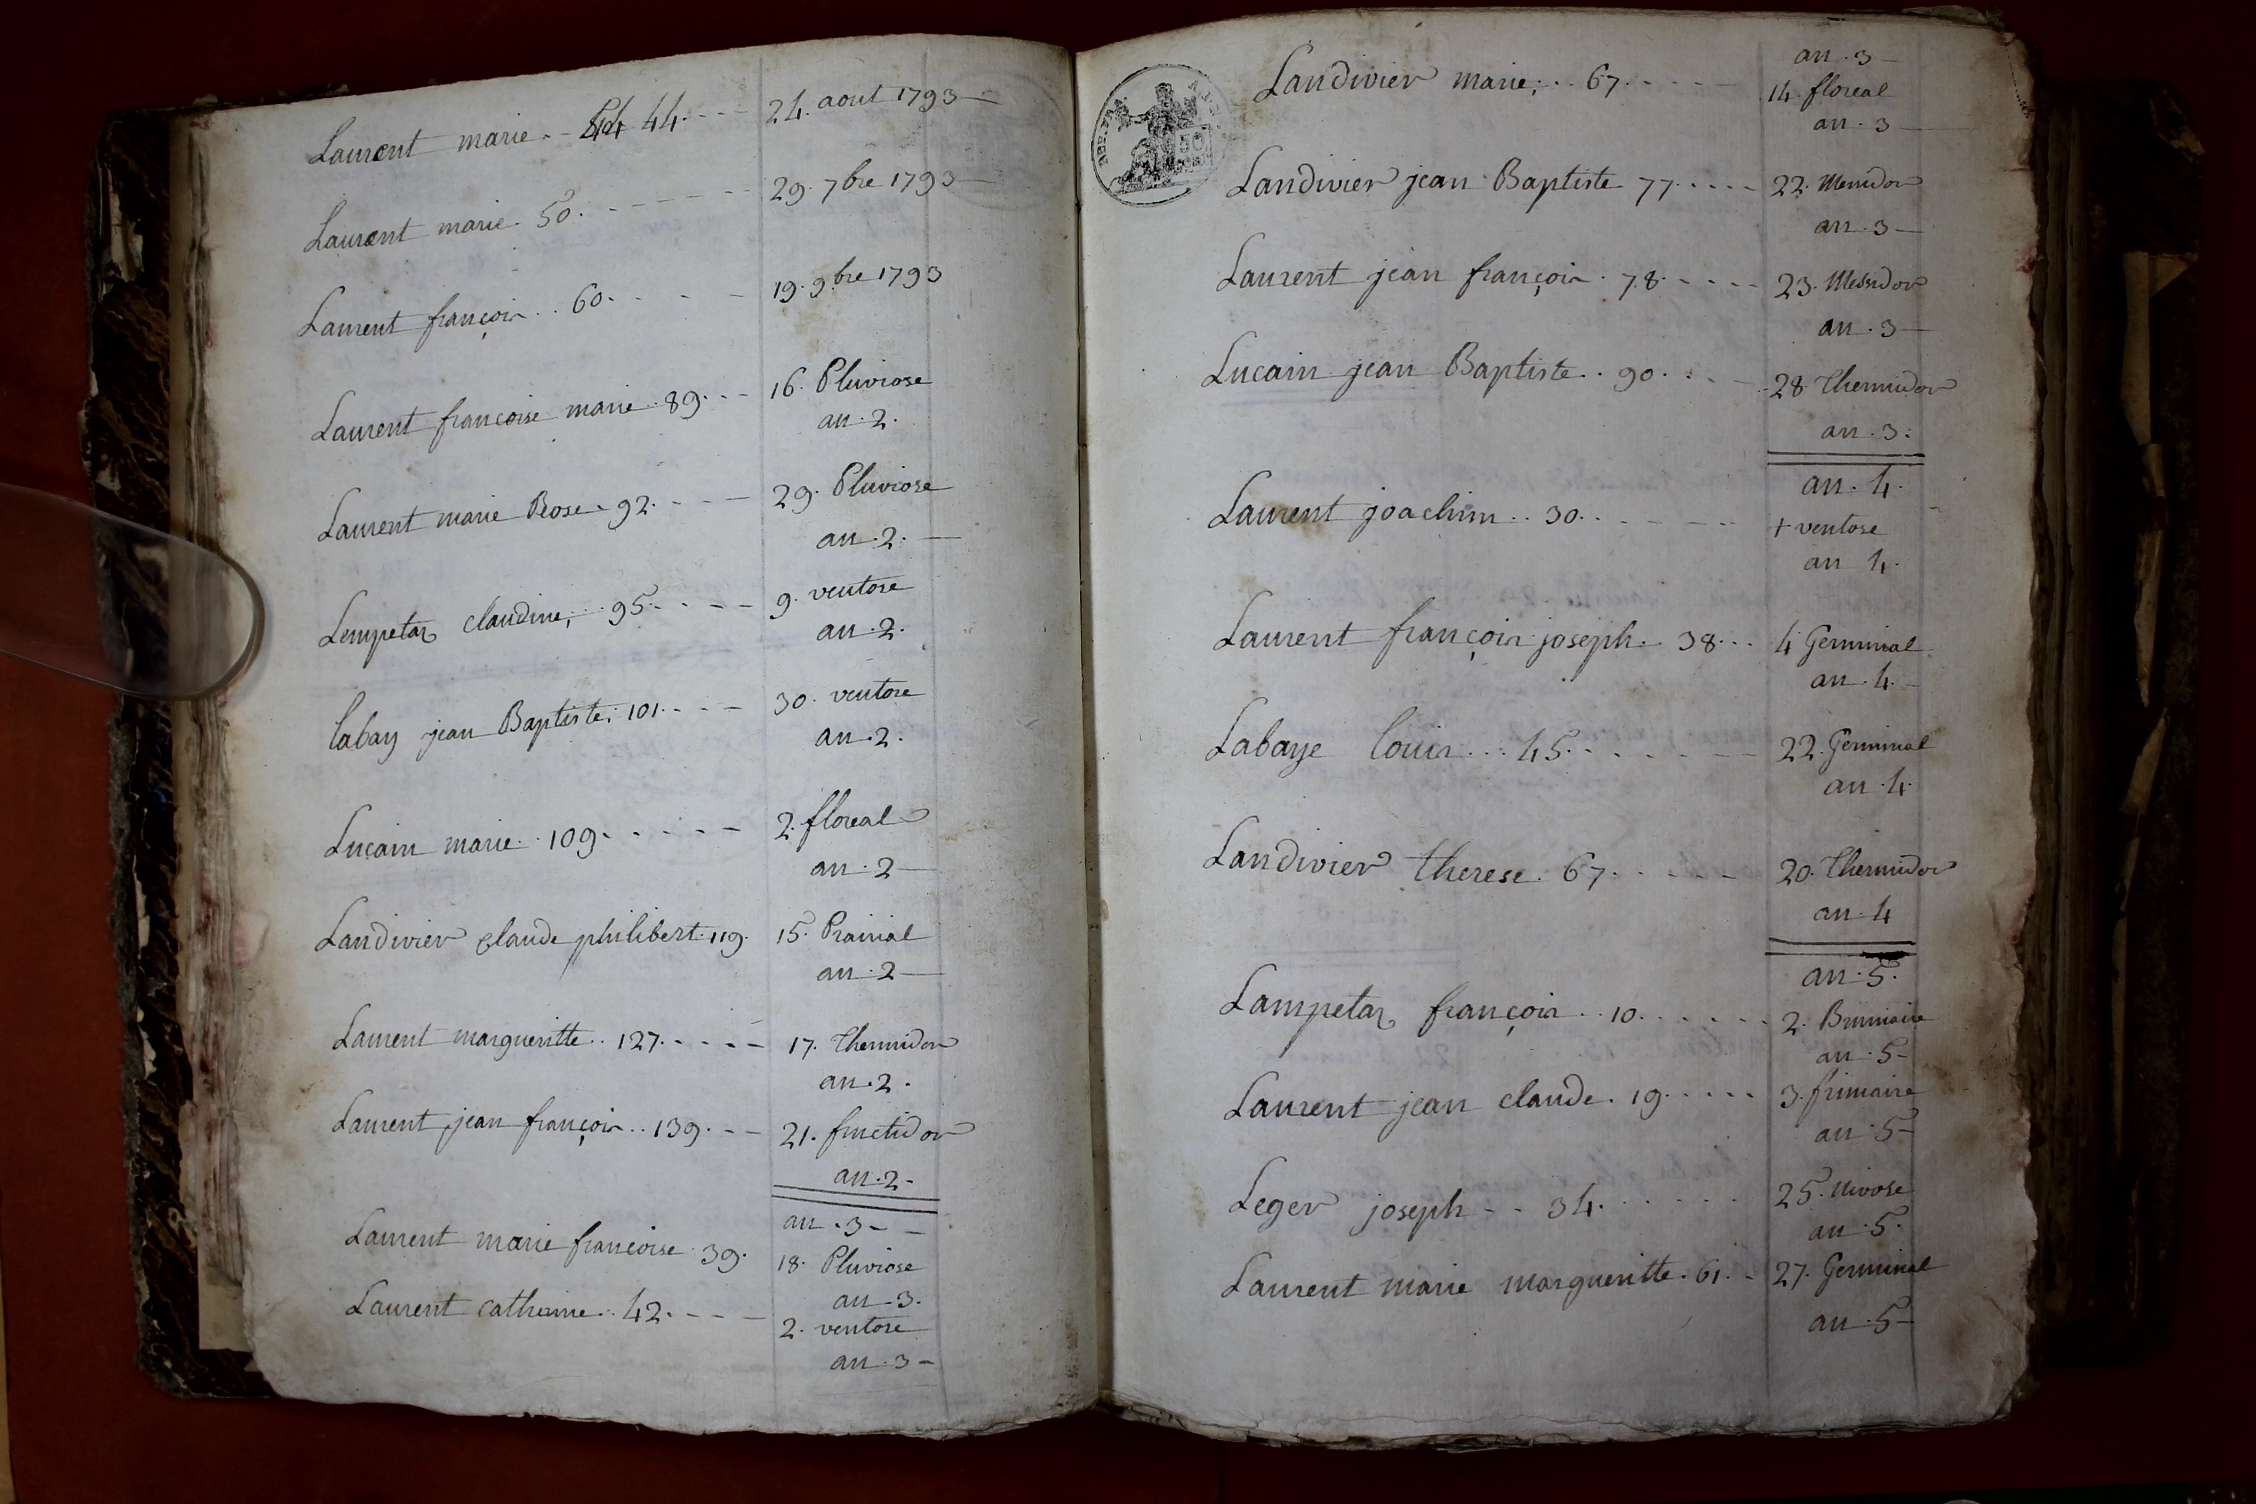 Laurent marie 44 44 24. aout 1793
Laurent marie. 50. 29. 7bre 1793
Laurent françois.. 60. 19. 9.bre 1793
Laurent francoise marie. 89. 16. Pluviose
an. 2.
Laurent marie Rose. 92. 29. Pluviose
an. 2.
Lempetaz claudine, 95. 9. ventose
an. 2.
labay jean Baptiste. 101. 30. ventose
an. 2.
Luçain marie. 109. 2. floreal
an. 2
Landivier claude philibert. 119. 15. Prairial
an. 2
Laurent margueritte.. 127. 17. Thermidor
an. 2.
Laurent jean françois.. 139. 21. fructidor
an. 2
an. 3
Laurent marie francoise. 39. 18. Pluviose
an. 3.
Laurent catherine. 42. 2. ventose
an. 3
an. 3
Landivier marie,.. 67. 14. floreal
an. 3
Landivier jean Baptiste 77. 22. Messidor
an. 3
Laurent jean françois. 78. 23. Messidor
an. 3
Lucain jean Baptiste.. 90. 28 Thermidor
an. 3.
an. 4.
Laurent joachim.. 30. + ventose
an 4.
Laurent françois joseph. 38... 4 Germinal
an. 4.
Labaye louis... 45. 22. Germinal
an. 4.
Landivier therese. 67. 20. Thermidor
an. 4
an. 5.
Lampetaz françois.. 10. 2. Brumaire
an. 5
Laurent jean claude. 19. 3. frimaire
an. 5
Leger joseph 34. 25. Nivose
an. 5.
Laurent marie margueritte. 61. 27. Germinal
an. 5